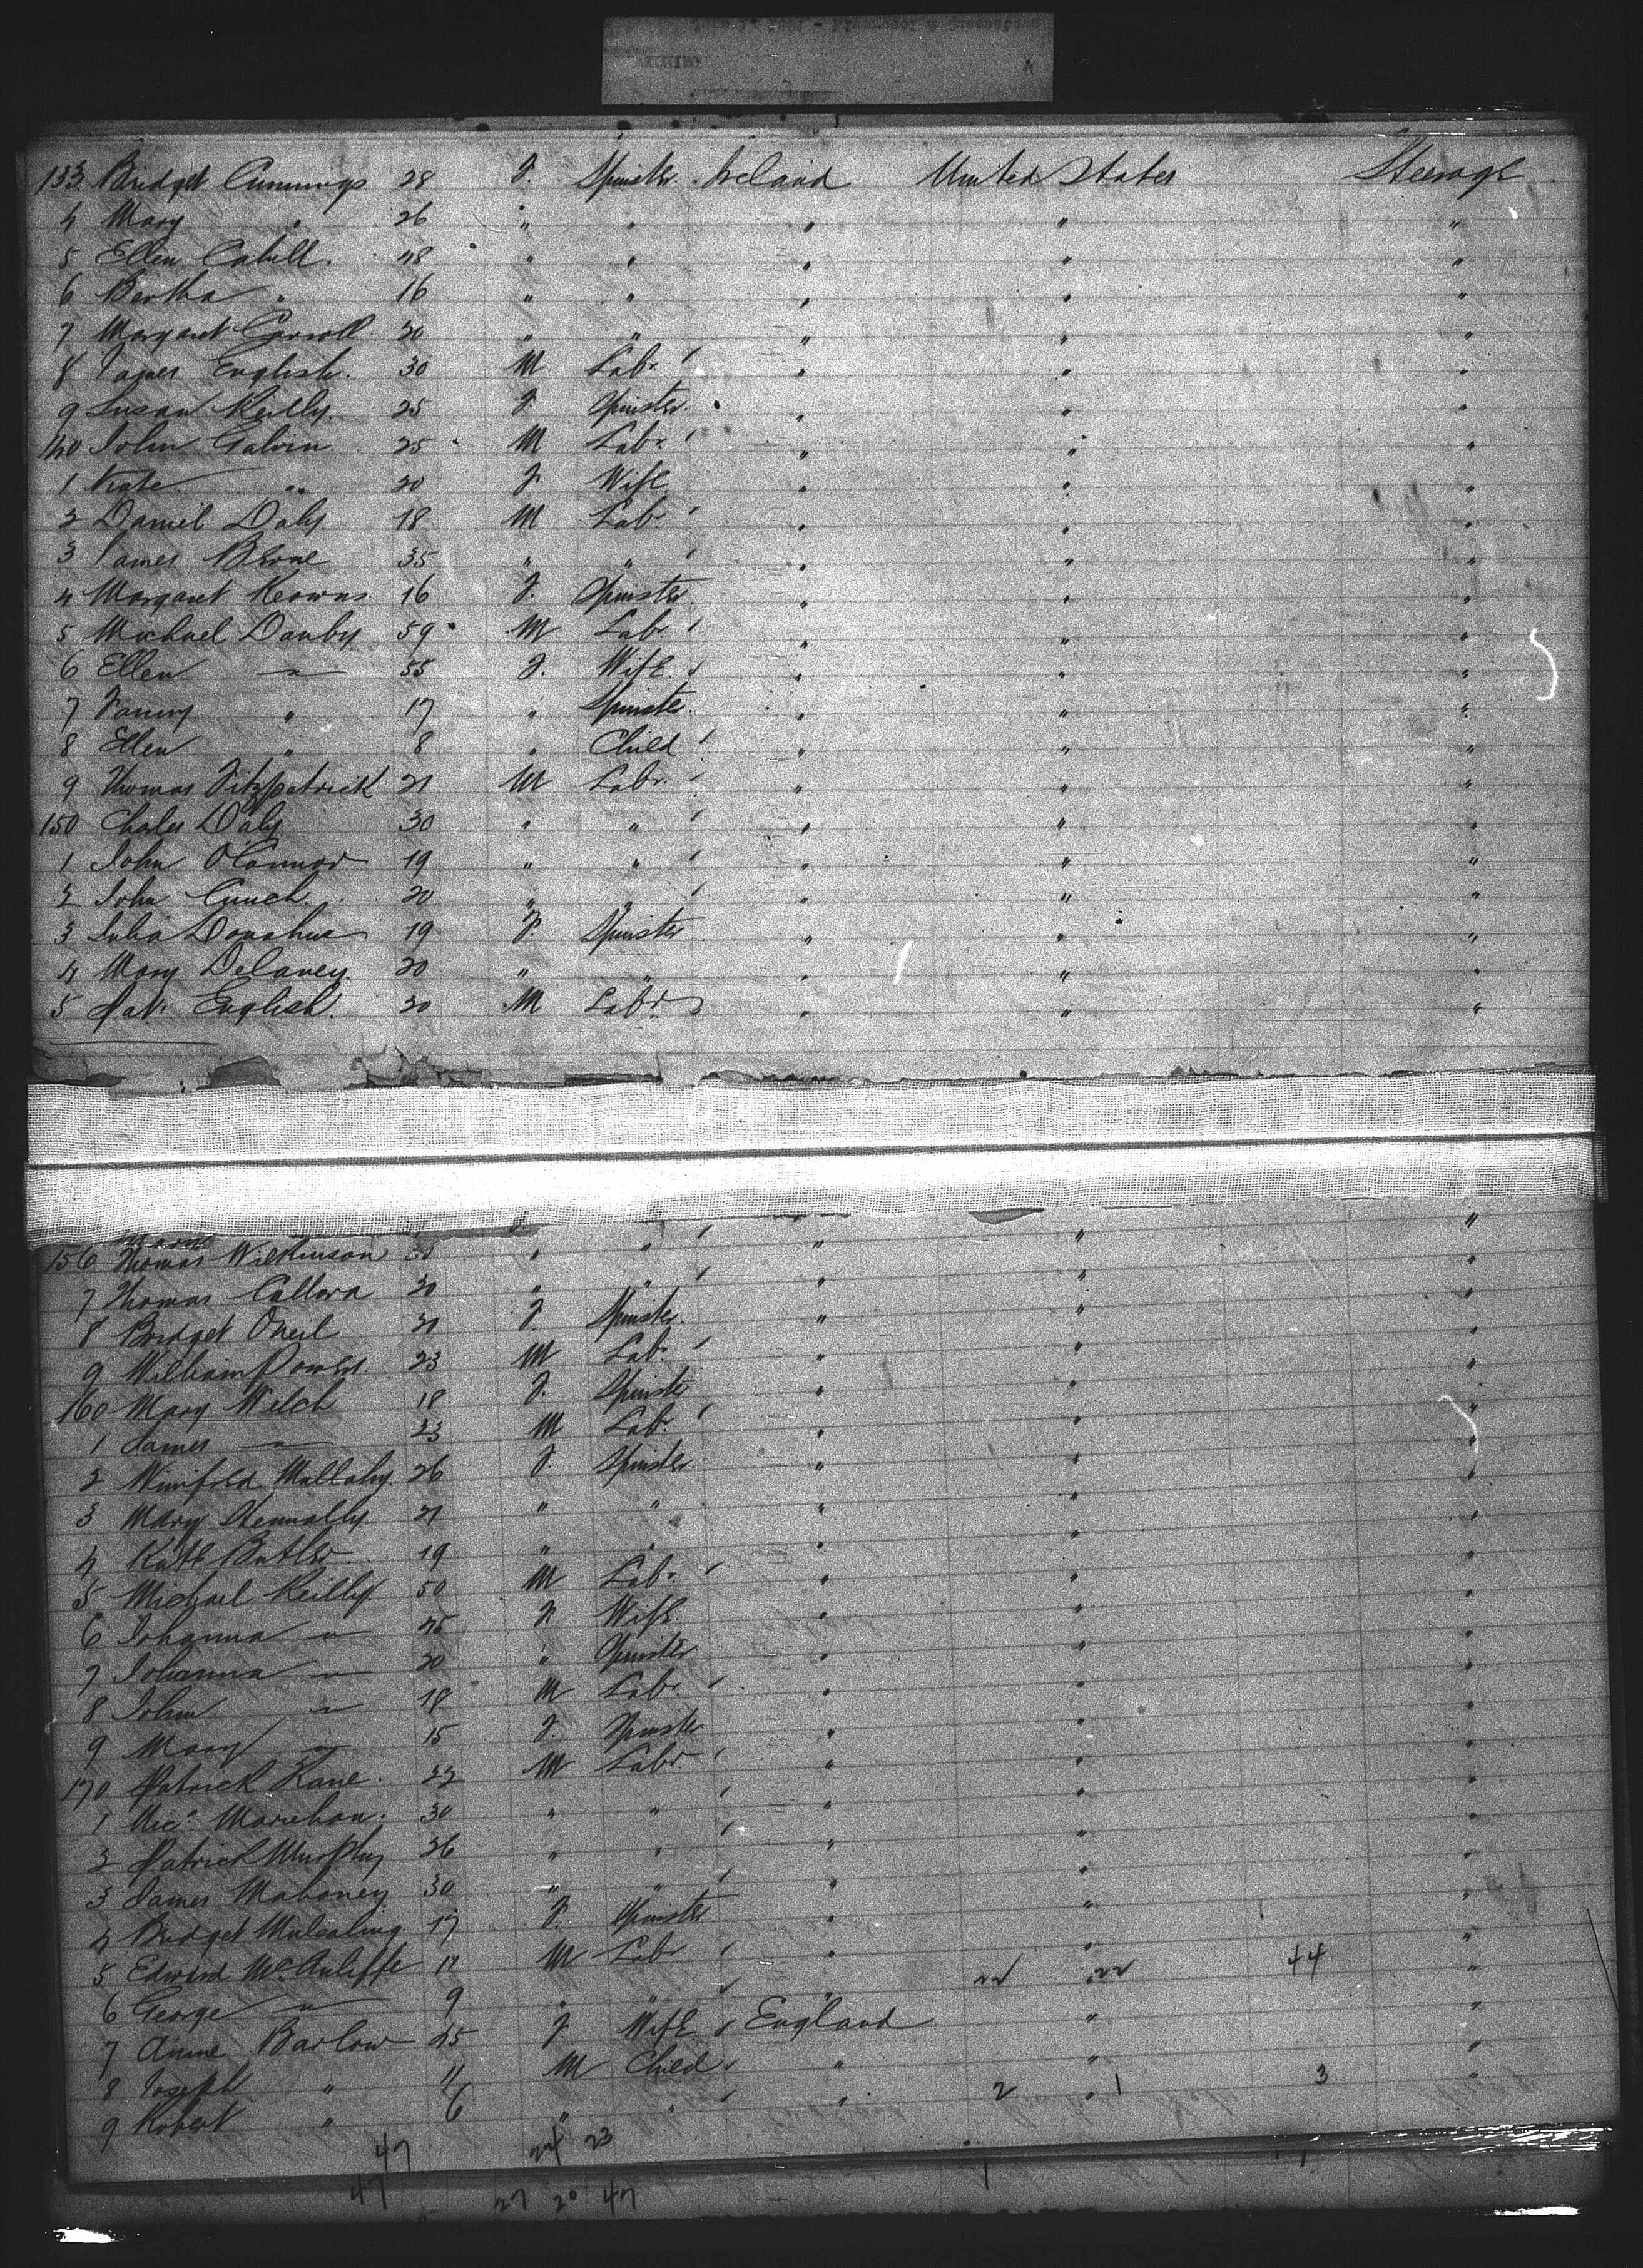 133 Bridget Cummings 28 F. Spinster Ireland United States Steerage
4 Mary " 26 " " " " "
5 Ellen Cahill. 48 " " " " "
6 Bertha " 16 " " " " "
7 Margaret Carroll 20 " " " " "
8 James English. 30 M Labr. " " "
9 Susan Reilly. 25 F Spinster. " " "
140 John Galvin 25 M Labr. " " "
1 Kate " 20 F Wife " " "
2 Daniel Daly 18 M Labr " " "
3 James 35 " " " " "
4 Margaret Keowns 16 F. Spinster. " " "
5 Michael Danby 59 M Labr " " "
6 Ellen " 55 F. Wife " " "
7 Fanny " 17 " Spinster. " " "
8 Ellen " 8 " Child " " "
9 Thomas Fitzpatrick 21 M Labr. " " "
150 Charles Daly 30 " " " " "
1 John O'Connor 19 " " " " "
2 John 20 " " " " "
3 Julia Donahue 19 F Spinster " " "
4 Mary Delaney. 20 " " " " "
5 Pat. English. 30 M Labr " " "
156 Thomas Wilkinson " " " " "
7 Thomas 30 " " " " "
8 Bridget Oneil F Spinster. " " "
9 William Power. 23 M Labr. " " "
160 Mary Welch 18 F. Spinster " " "
1 James " 23 M Labr. " " "
2 Winifred Mullahy. 26 F Spinster " " "
3 Mary 21 " " " " "
4 Kate Butler 19 " " " " "
5 Michael Reilly. 50 M Labr. " " "
6 Johanna " 45 F Wife. " " "
7 Johanna " 20 " Spinster " " "
8 John " 18 M Labr. " " "
9 Mary " 15 F. Spinster " " "
170 Patrick Kane. 22 M Labr. " " "
1 Mic. 30 " " " " "
2 Patrick Murphy 26 " " " " "
3 James Mahoney 30 " " " " "
4 Bridget 17 F. Spinster " " "
5 Edward McAuliffe 11 M Labr " " 44 "
6 George " 9 " " " 22 22 "
7 Anne Barlow 45 F Wife England " "
8 Joseph " 11 M Child " " "
9 Robert " 6 " " " 2 " 1 3 "
47 24 23
47 27 20 47